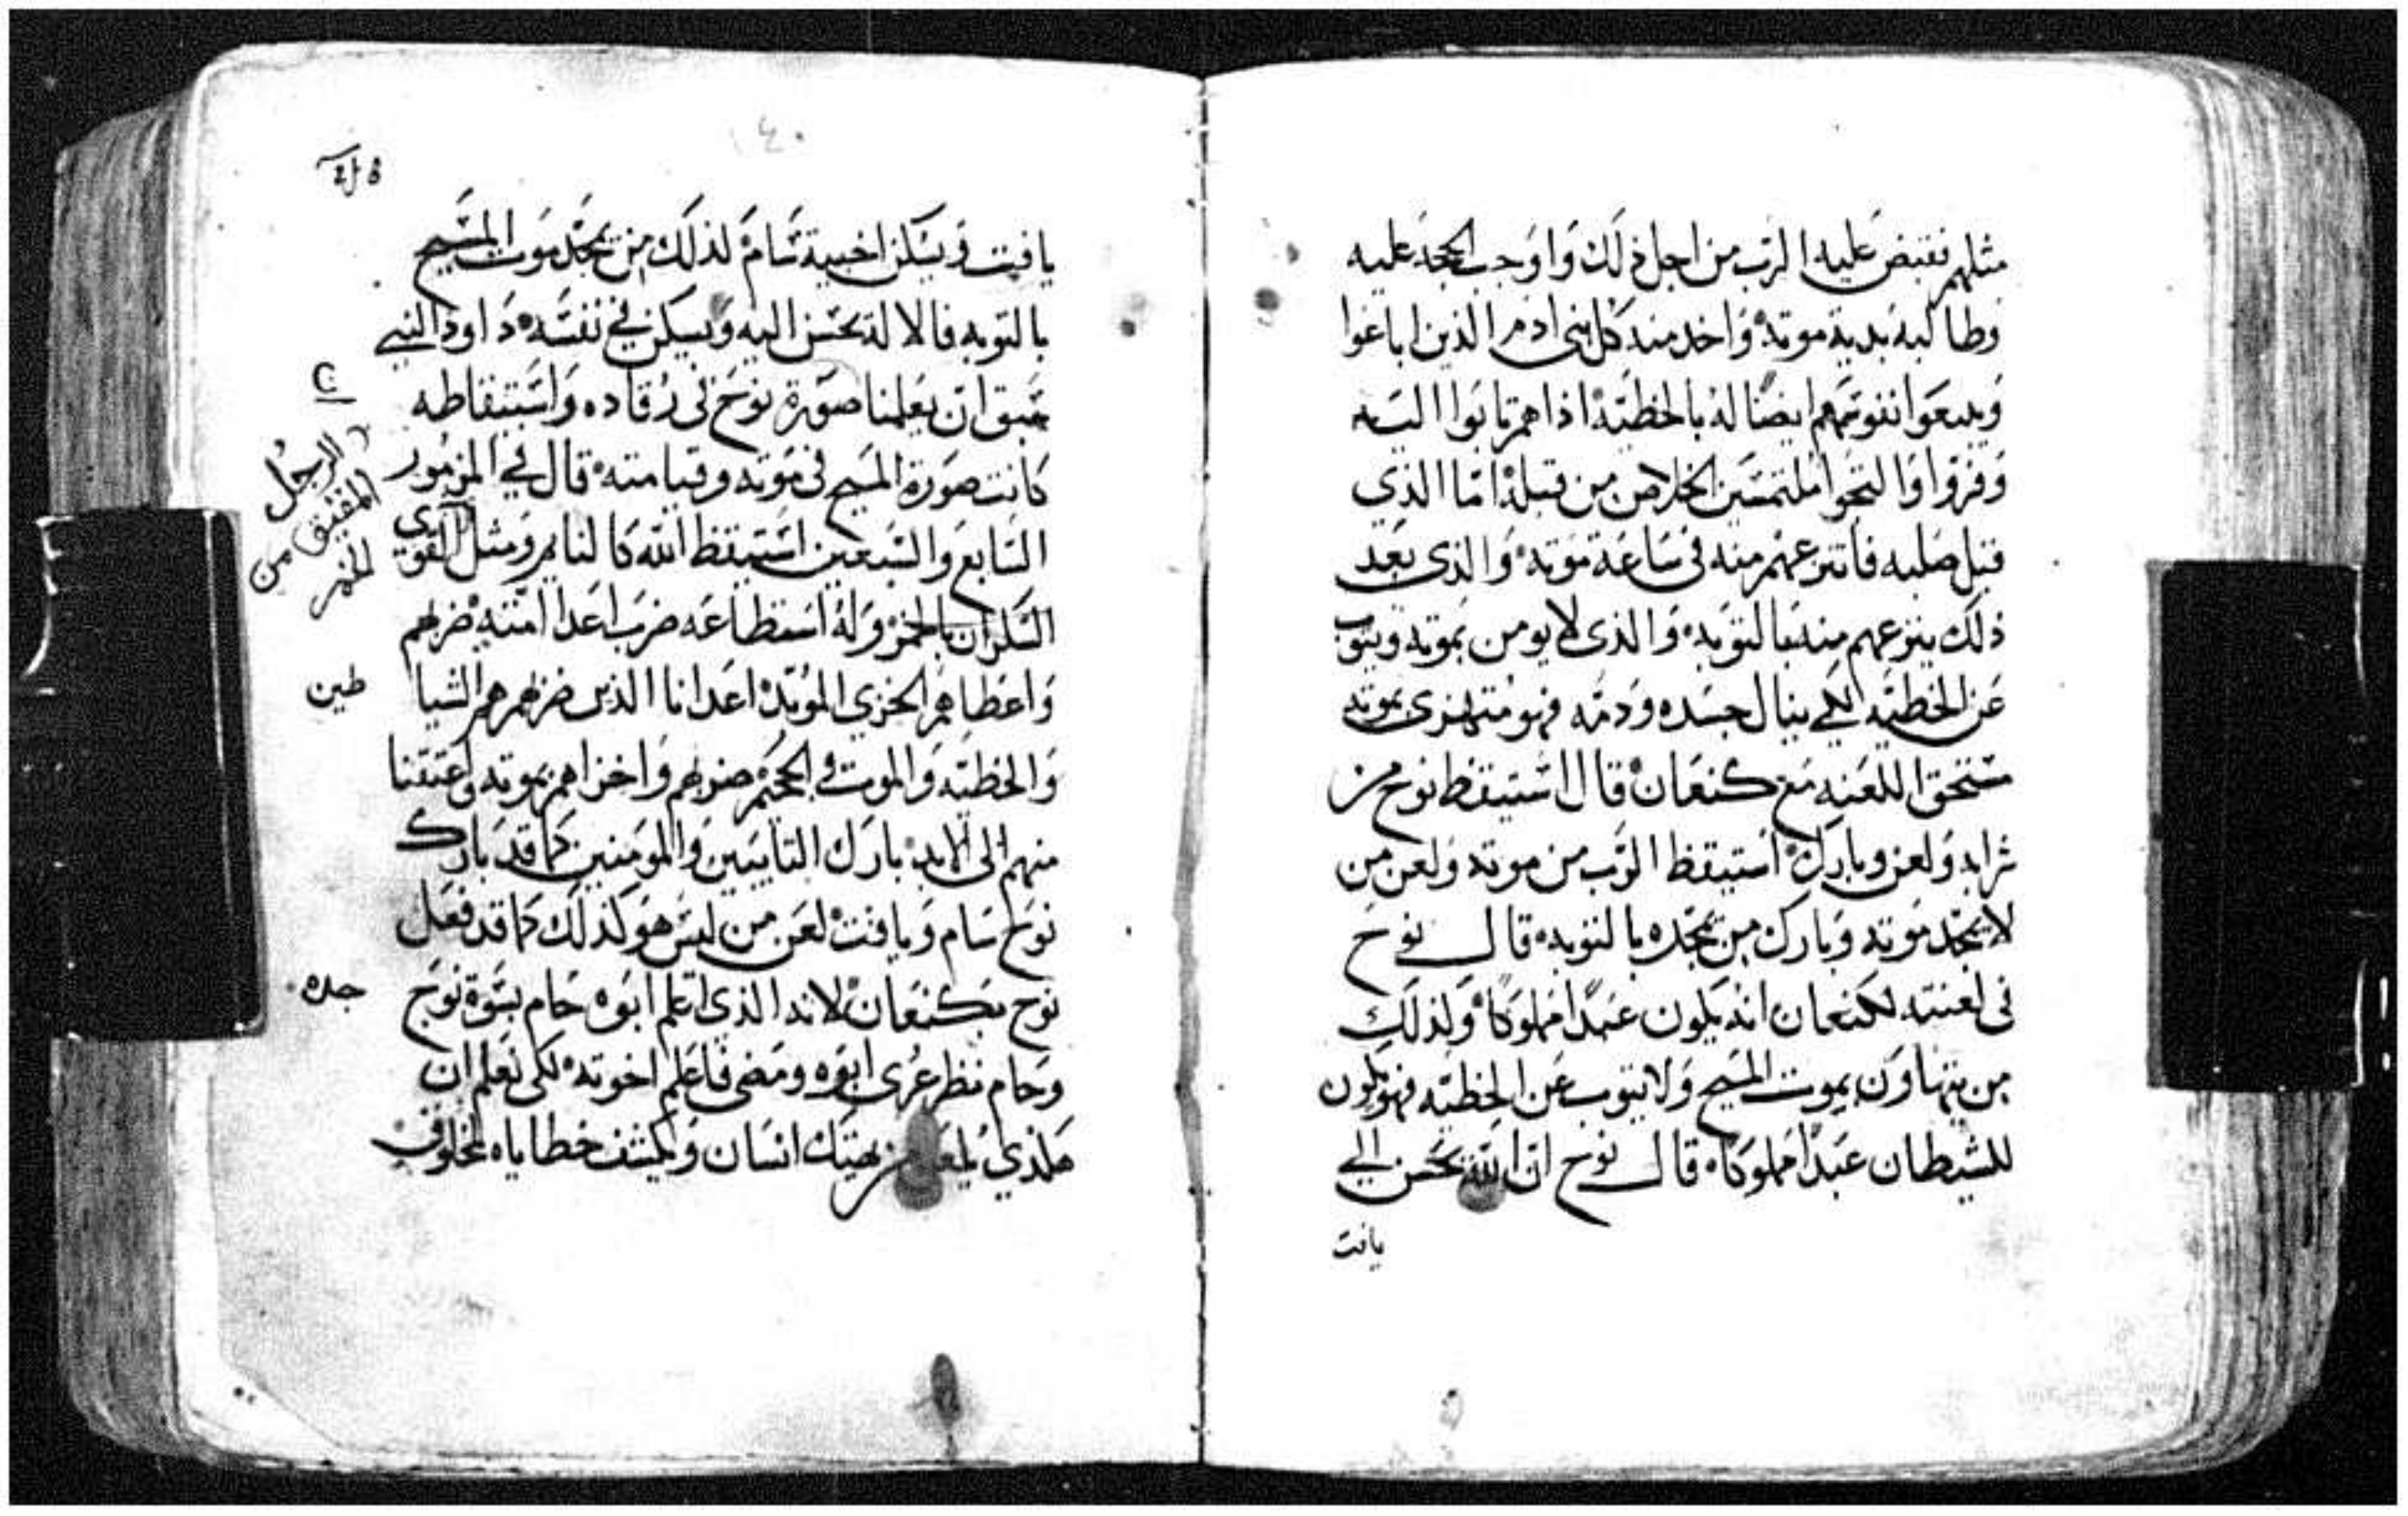 مثلهم فقبض عليه الرب من اجل ذلك واوجب الحجه عليه
وطالبه بدية موته واخد منه كل بني ادم الذين اباعوا
ويبيعوا نفوسهم ايضا له بالخطيه اذا هم تابوا اليه
وفروا والتجوا ملتمسين الخلاص من قبله اما الذي
قبل صلبه فانتزعهم منه في ساعة موته والذي بعد
ذلك ينتزعهم منه بالتوبه والذي لا يومن بموته ويتوب
عن الخطيه لكي ينال جسده ودمه فهو متهزي بموته
مستحق اللعنه مع كنعان قال استيقظ نوح من
شرابه ولعن وبارك استيقظ الرب من موته ولعن من
لا يمجد موته وبارك من يمجده بالتوبه قال نوح
في لعنته لكنعان انه يكون عبدا مملوكا ولذلك
من يتهاون بموت المسيح ولا يتوب عن الخطيه فهو يكون
للشيطان عبدا مملوكا قال نوح ان الله يحسن الي
يافت
١٤٠
يافت ويسكن اخبية سام لذلك من يمجد موت المسيح
بالتوبه فالاله يحسن اليه ويسكن في نفسه داود النبي
سبق ان يعلمنا صورة نوح في رقاده واستيقاظه
كانت صورة المسيح في موته وقيامته قال في المزمور
السابع والسبعين استيقظ الله كالنايم ومثل القوي
السكران بالخمر وله استقطاعه ضرب اعدا امته ضربهم
واعطاهم الخزي المويد اعدانا الذين ضربهم هم الشيا
طين
والخطيه والموت في الجحيم ضربهم واخزاهم بموته واعتقنا
منهم الى الابد بارك التايبين والمومنين كما قد بارك
نوح سام ويافت لعن من ليس هو كذلك كما قد فعل
نوح بكنعان لانه الذي اعلم ابوه حام بسوة نوح
جده
وحام نظر عري ابوه ومضى فاعلم اخوته لكي نعلم ان
هكذي يلعن من يهتك انسان ويكشف خطاياه لمخلوق
الرجل
المفيق من
الخمر